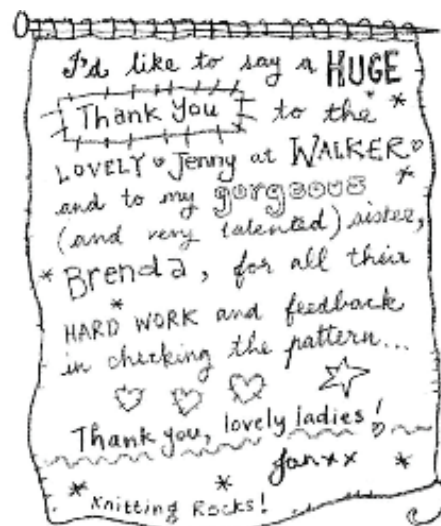 I'd like to say a HUGE
Thank You to the
LOVELY Jenny at WALKER
and to my gorgeous
(and very talented) sister,
Brenda, for all their
HARD WORK and feedback
in checking the pattern...
Thank you, lovely ladies!
Jan xx
Knitting Rocks!